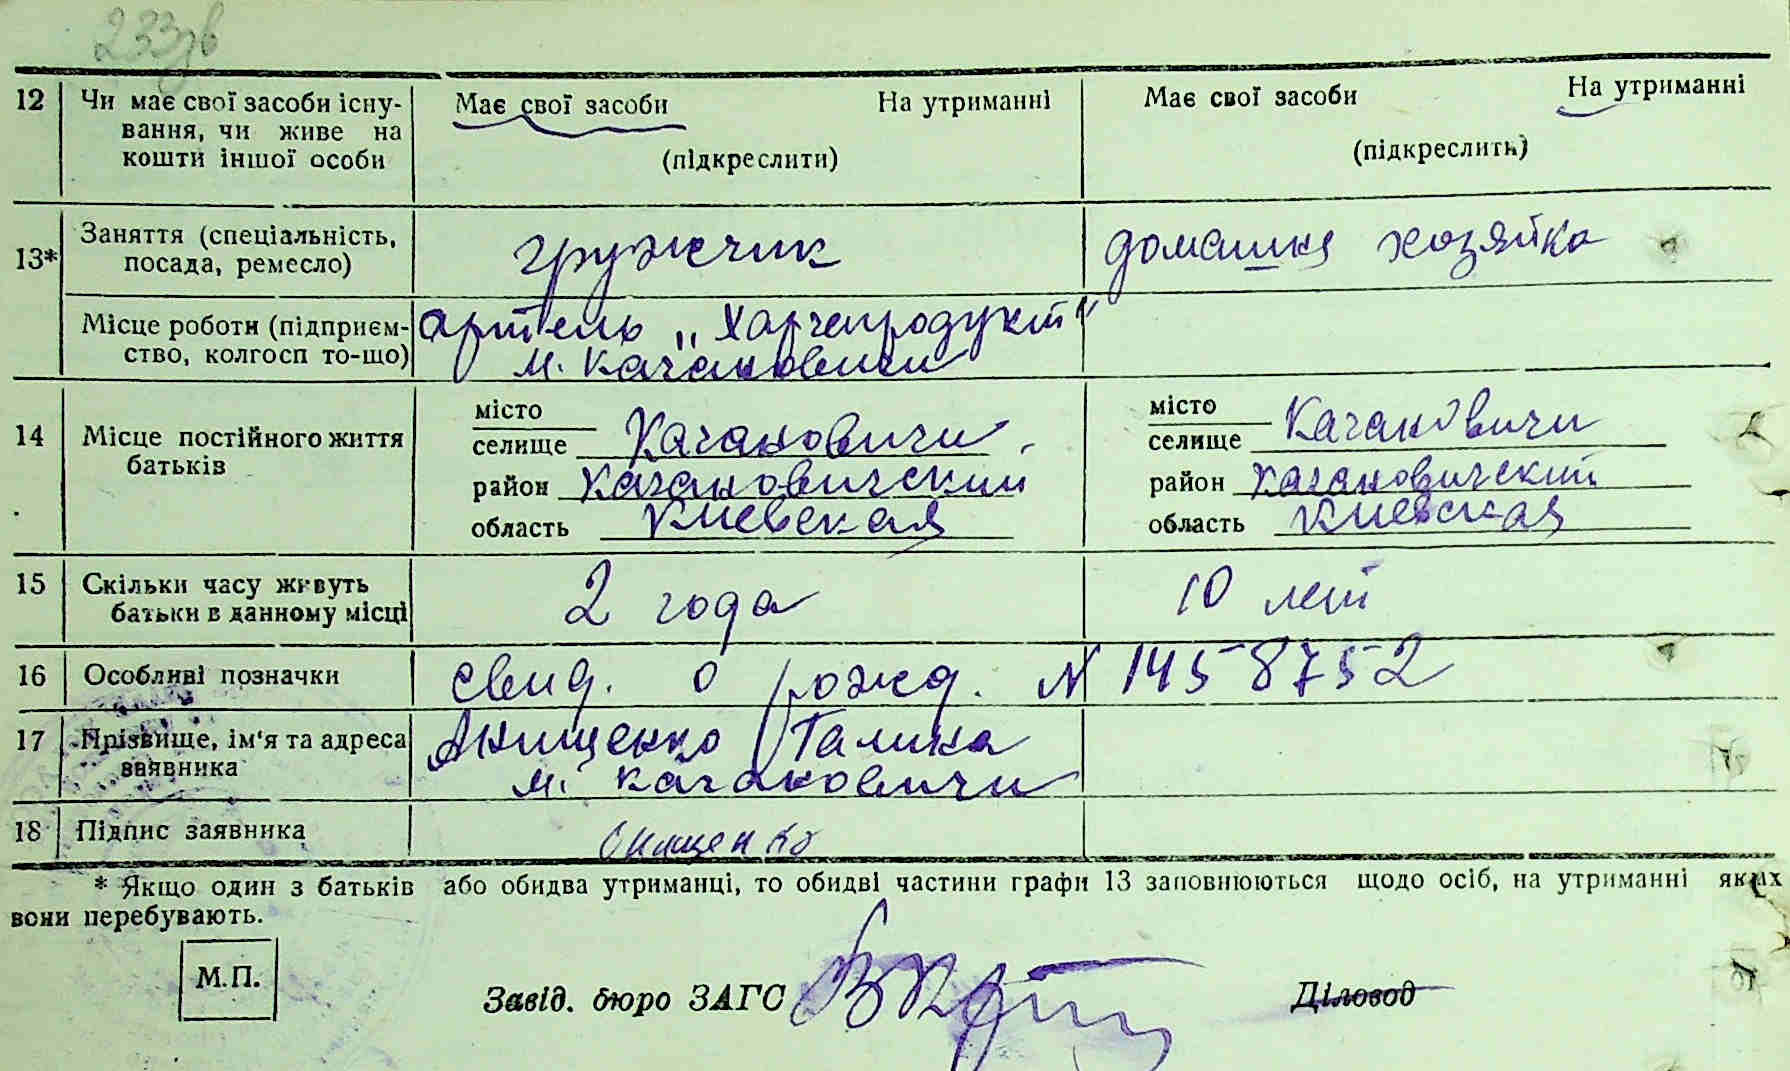 233зв
12 Чи має свої засоби існу- Має свої засоби На утриманні Має свої засоби На утриманні
вання, чи живе на
кошти іншої особи (підкреслити) (підкреслить)
13* Заняття (спеціальність, грузчик домашня хозяйка
посада, ремесло)
Місце роботи (підприєм- артель „Харчепродукт“
ство, колгосп то-що) м. Каганович
14 Місце постійного життя місто місто
батьків селище Кагановичи селище Кагановичи
район Кагановичский район Кагановичский
область Киевская область Киевская
15 Скільки часу живуть 2 года 10 лет
батьки в данному місці
16 Особливі позначки свид. о рожд. N 1458752
17 Прізвище, ім'я та адреса Анищенко Галина
заявника м. Кагановичи
18 Підпис заявника Онищенко
* Якщо один з батьків або обидва утриманці, то обидві частини графи 13 заповнюються щодо осіб, на утриманні яких
вони перебувають.
М.П. Завід. бюро ЗАГС Діловод